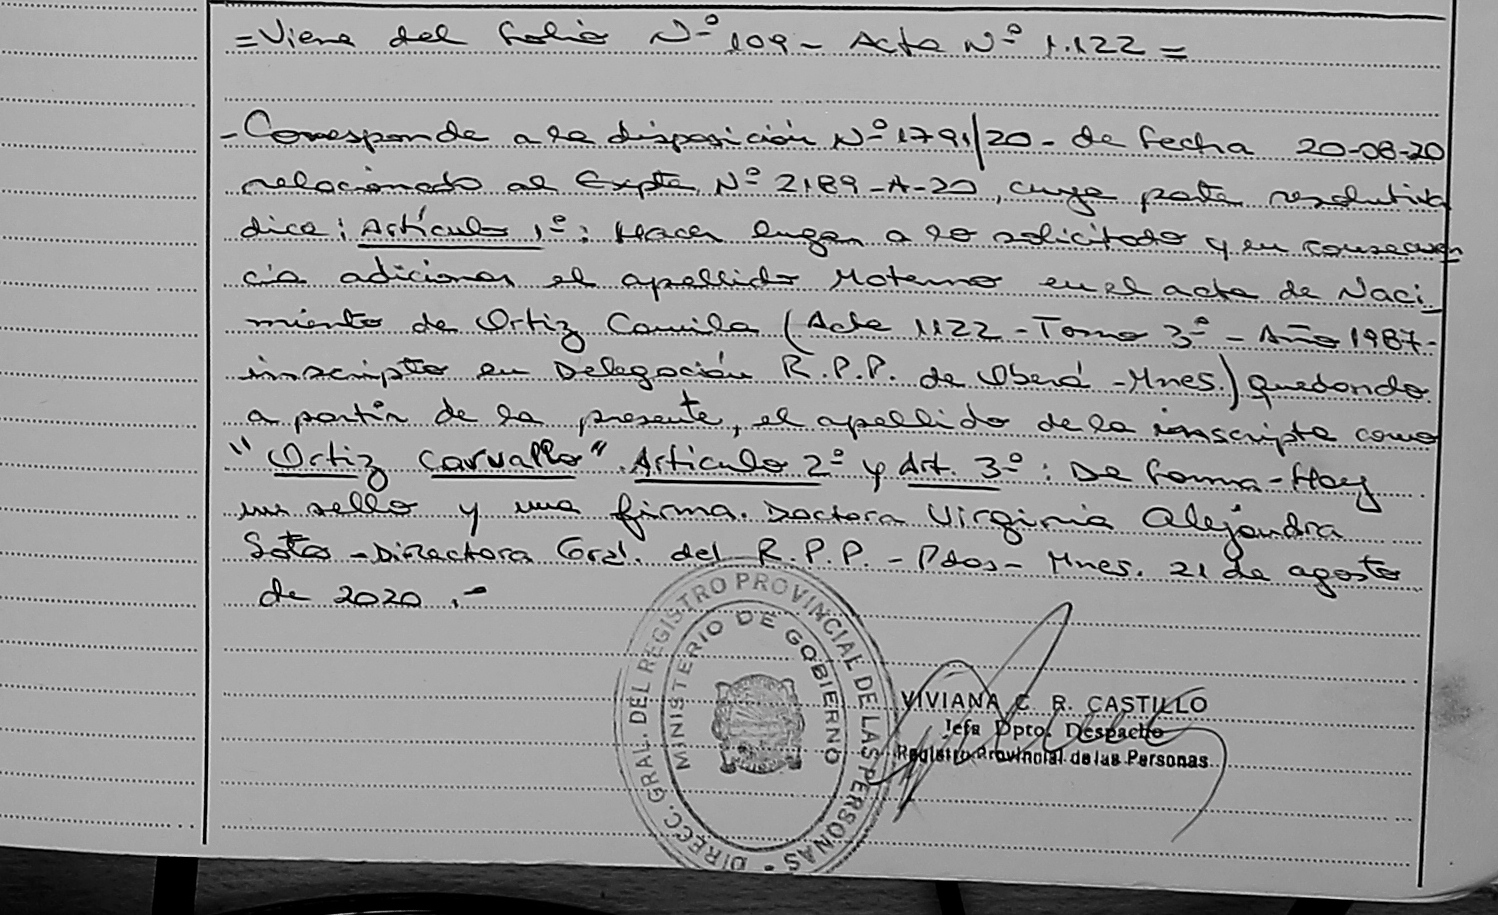 =Viene del folio Nº 109 - Acta Nº 1.122=
- Corresponde a la disposición Nº 1791/20 - de fecha 20-08-20
relacionado al Expte. Nº 2189-A-20, cuya parte resolutiva
dice: Artículo 1º: Hacer lugar a lo solicitado y en consecuen
cia adicionar el apellido Materno en el acta de Naci-
miento de Ortiz Camila (Acta 1122 - Tomo 3º - Año 1987-
inscripto en Delegación R.P.P. de Oberá - Mnes.) quedando
a partir de la presente, el apellido de la inscripta como
"Ortiz Carvallo". Artículo 2º y Art. 3º: De forma - Hay
un sello y una firma. Doctora Virginia Alejandra
Sotas - Directora Gral. del R.P.P. - Pdas - Mnes. 21 de agosto
de 2020.-
DIRECC. GRAL. DEL REGISTRO PROVINCIAL DE LAS PERSONAS
MINISTERIO DE GOBIERNO
VIVIANA C. R. CASTILLO
Jefa Dpto. Despacho
Registro Provincial de las Personas